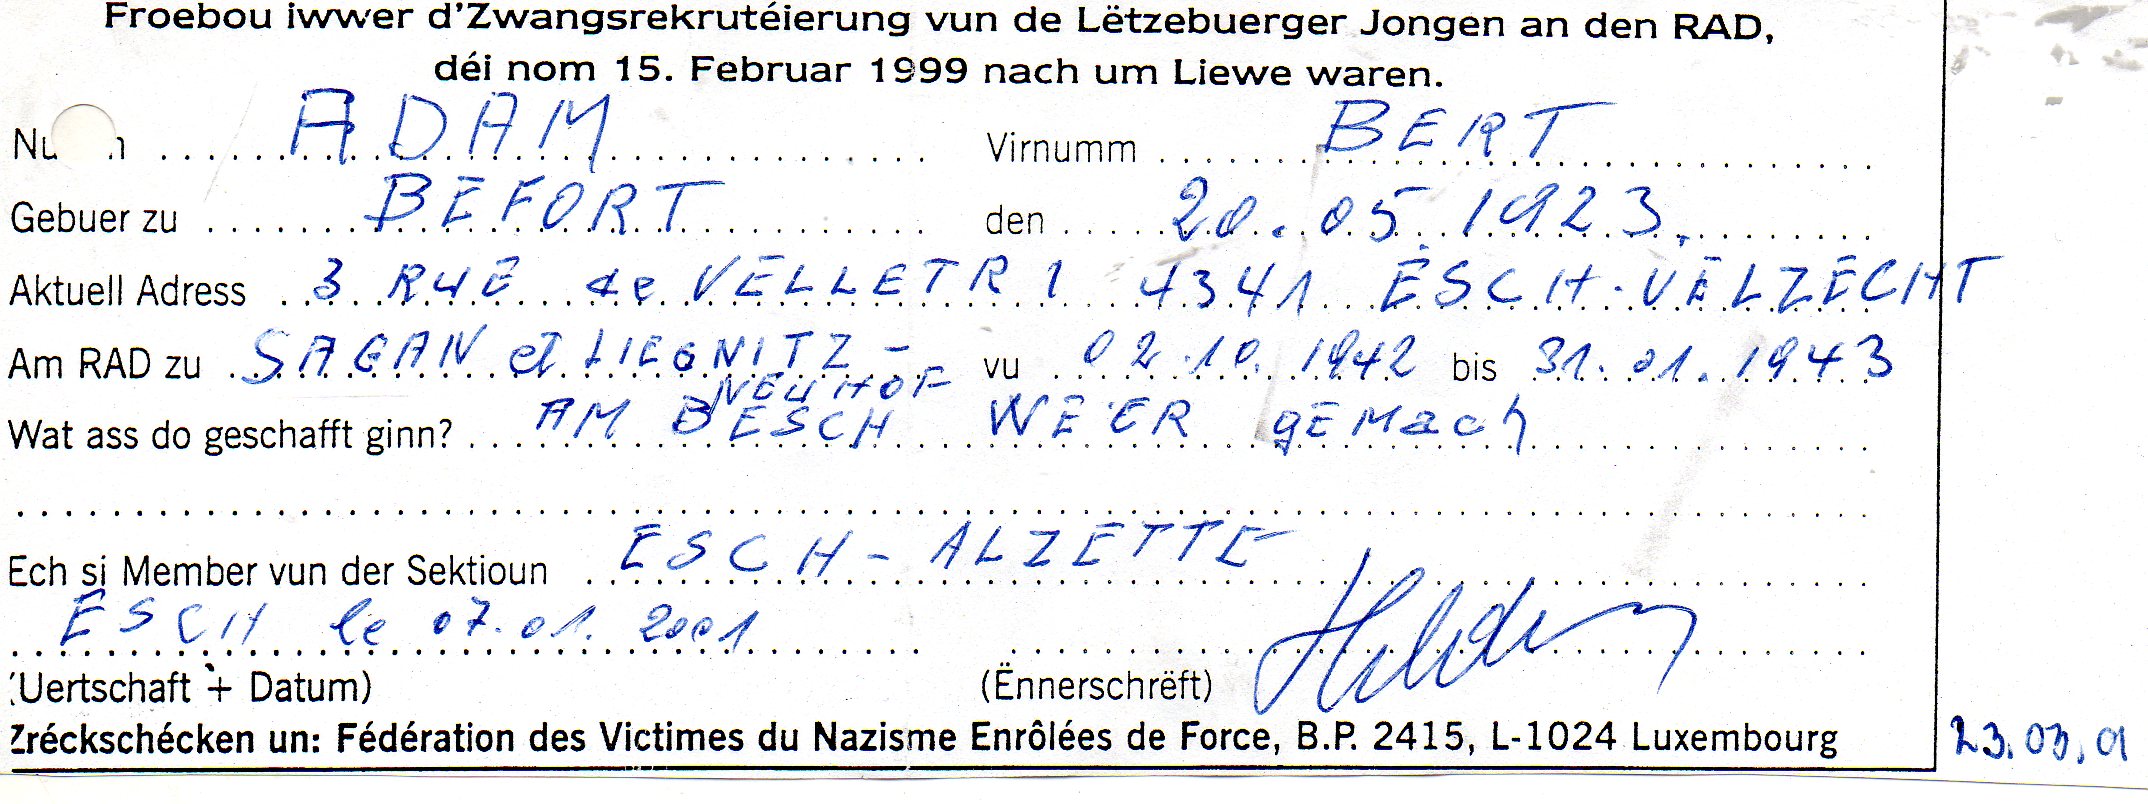 Froebou iwwer d'Zwangsrekrutéierung vun de Lëtzebuerger Jongen an den RAD,
déi nom 15. Februar 1999 nach um Liewe waren.
ADAM Virnumm BERT
Gebuer zu BEFORT den 20.05.1923.
Aktuell Adress 3 RUE de VELLETRI 4341 ESCH-UELZECHT
Am RAD zu SAGAN et LIEGNITZ - vu 02.10.1942 bis 31.01.1943
NEUHOF
Wat ass do geschafft ginn? AM BESCH WEER gEMach
Ech si Member vun der Sektioun ESCH-ALZETTE
ESCH le 07.01.2001
(Uertschaft + Datum) (Ënnerschrëft)
Zréckschécken un: Fédération des Victimes du Nazisme Enrôlées de Force, B.P. 2415, L-1024 Luxembourg 23.03.01